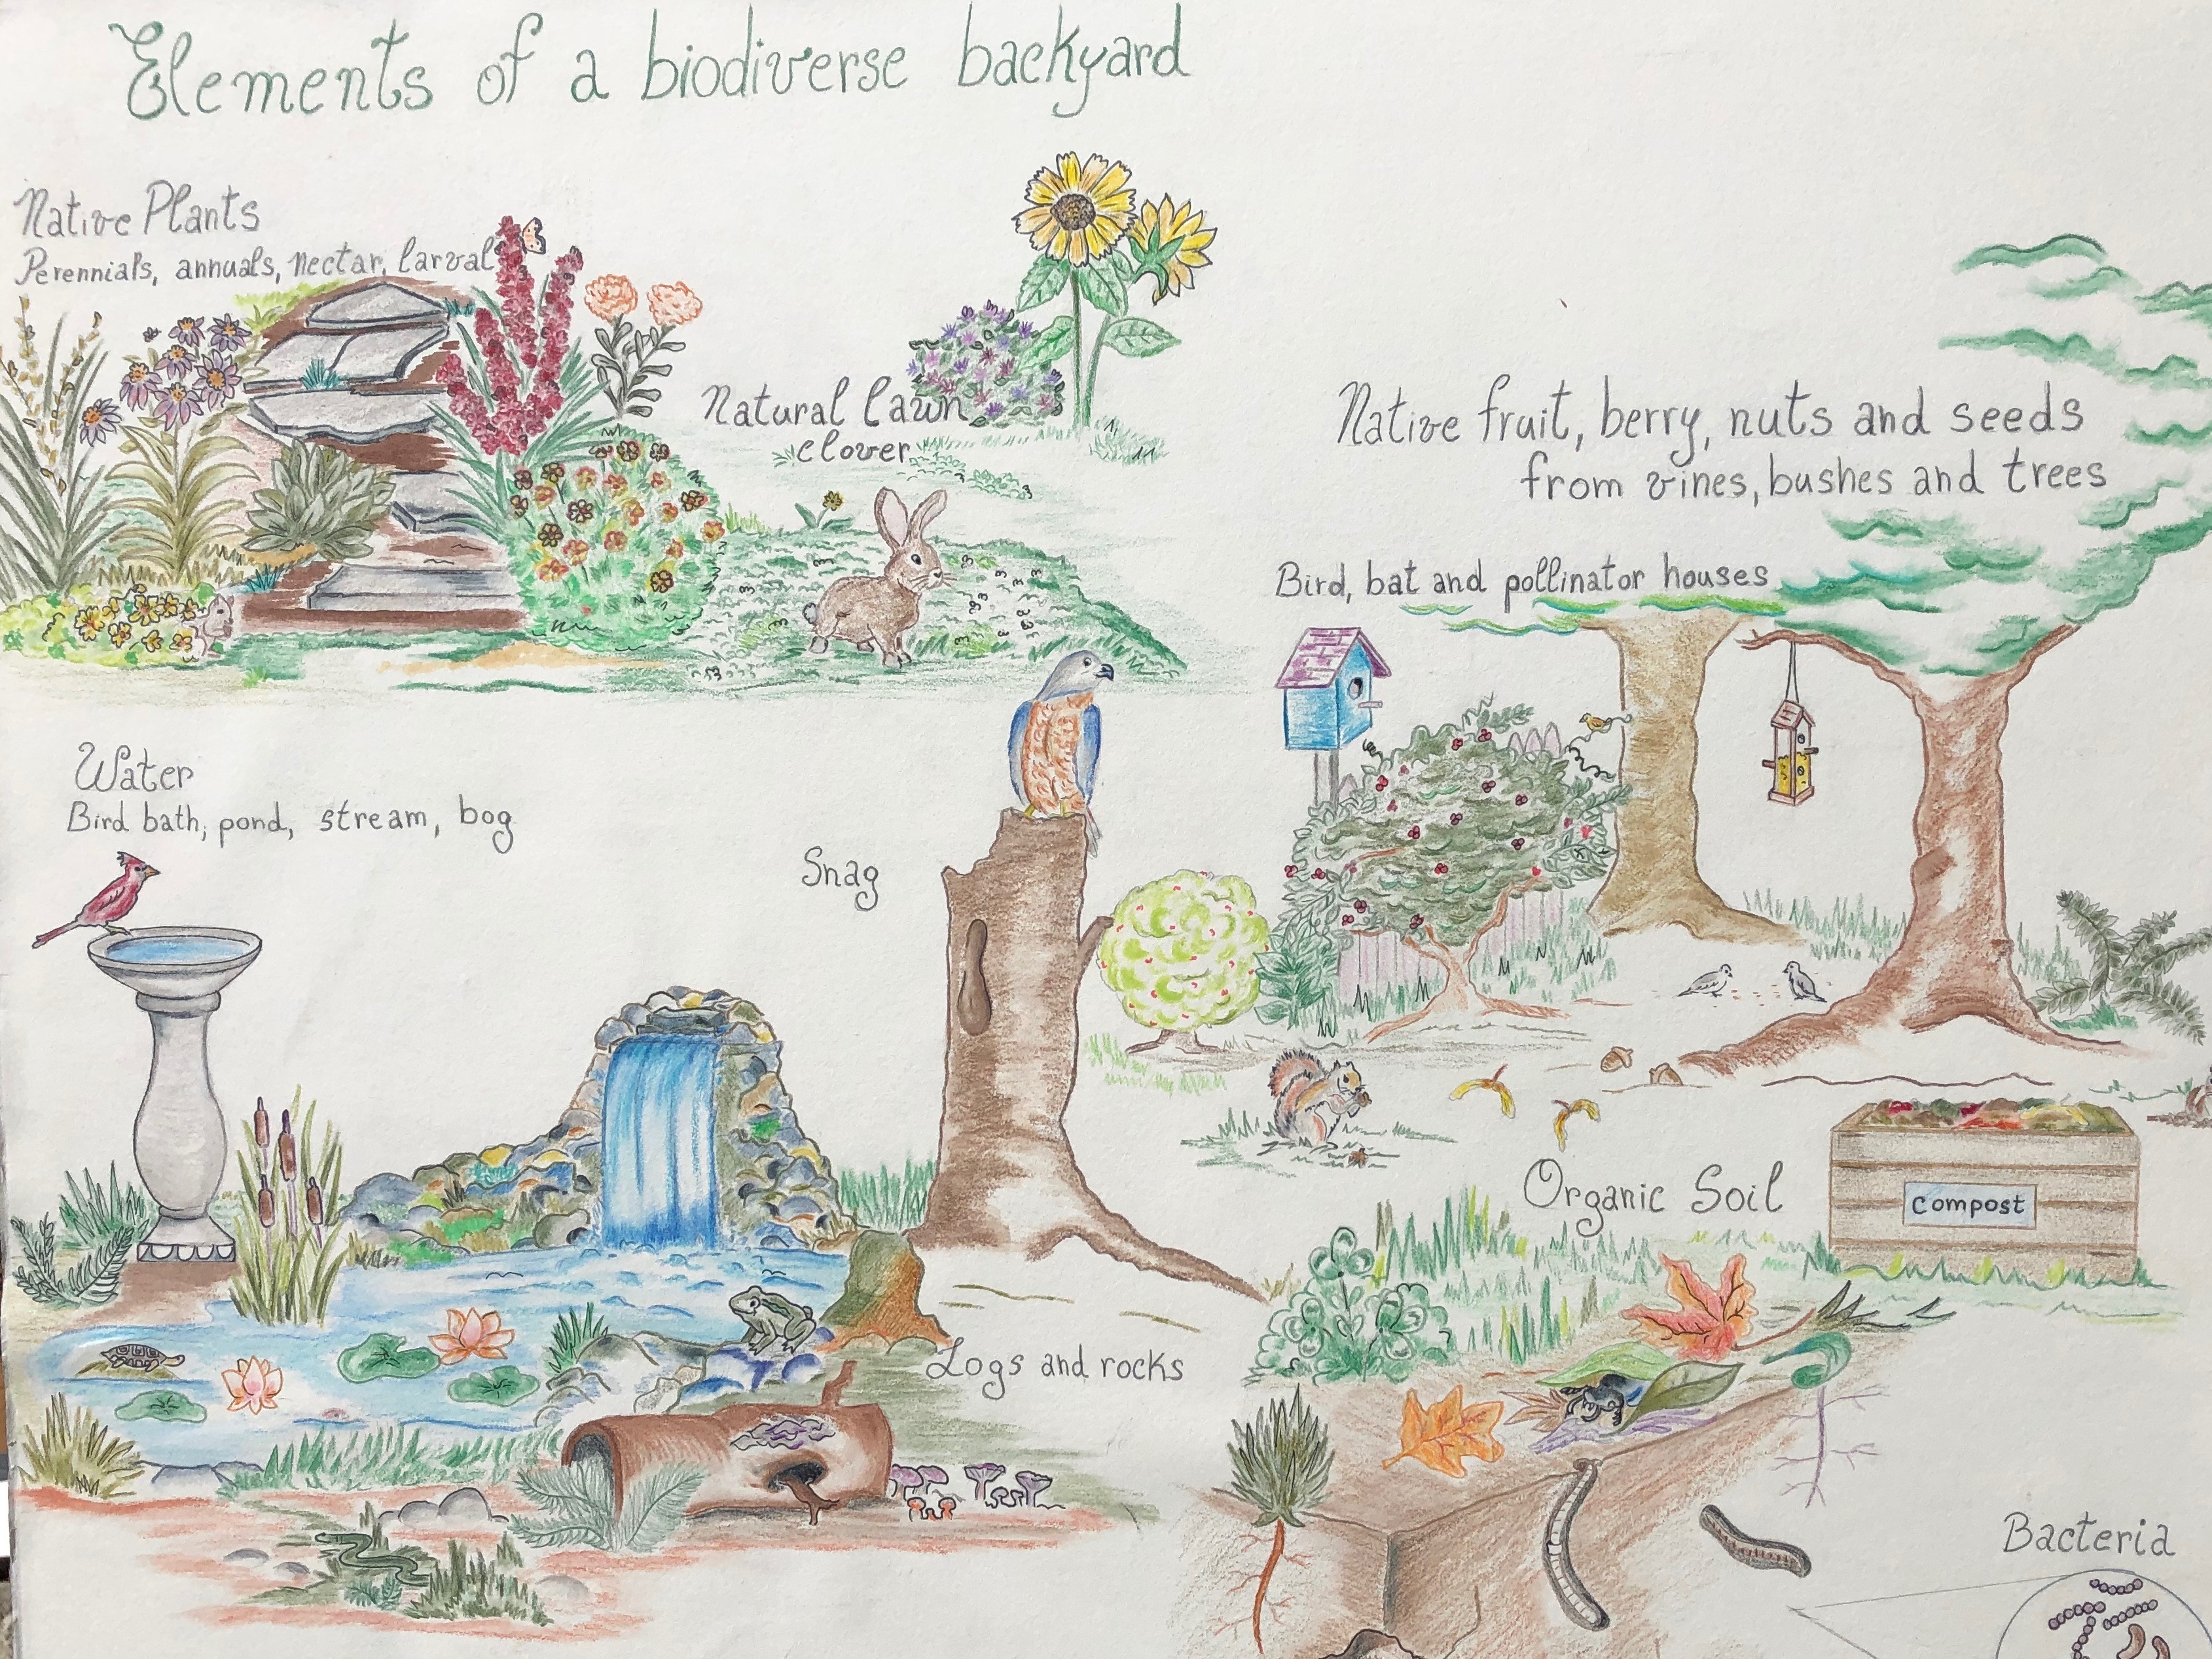 Elements of a biodiverse backyard
Native Plants
Perennials, annuals, nectar, larval
Natural lawn
clover
Native fruit, berry, nuts and seeds
from vines, bushes and trees
Bird, bat and pollinator houses
Water
Bird bath, pond, stream, bog
Snag
Organic Soil
Compost
Logs and rocks
Bacteria